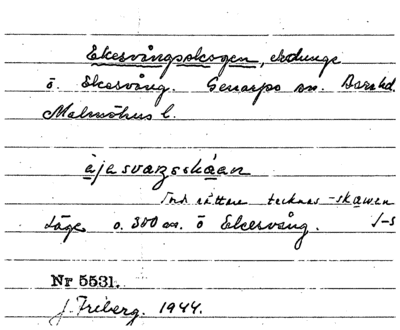 Ekesvångsskogen, skogdunge
ö. Ekesvång. Genarps sn. Bara hd.
Malmöhus l.
ājasvaŋsskåan
Torde rättare tecknas -skawen
Läge o. 300 m. ö Ekesvång. I-s
Nr 5531.
J. Friberg. 1944.